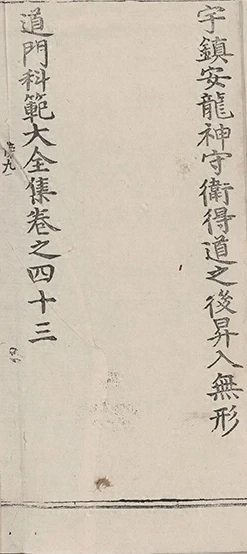 宇鎮安龍神守衛得道之後昇入無形
道門科範大全集卷之四十三